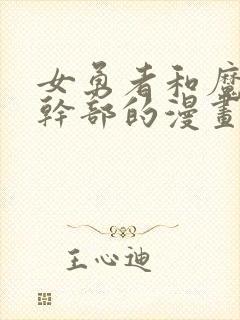 女勇者和魔
幹部的漫畫
王心迪